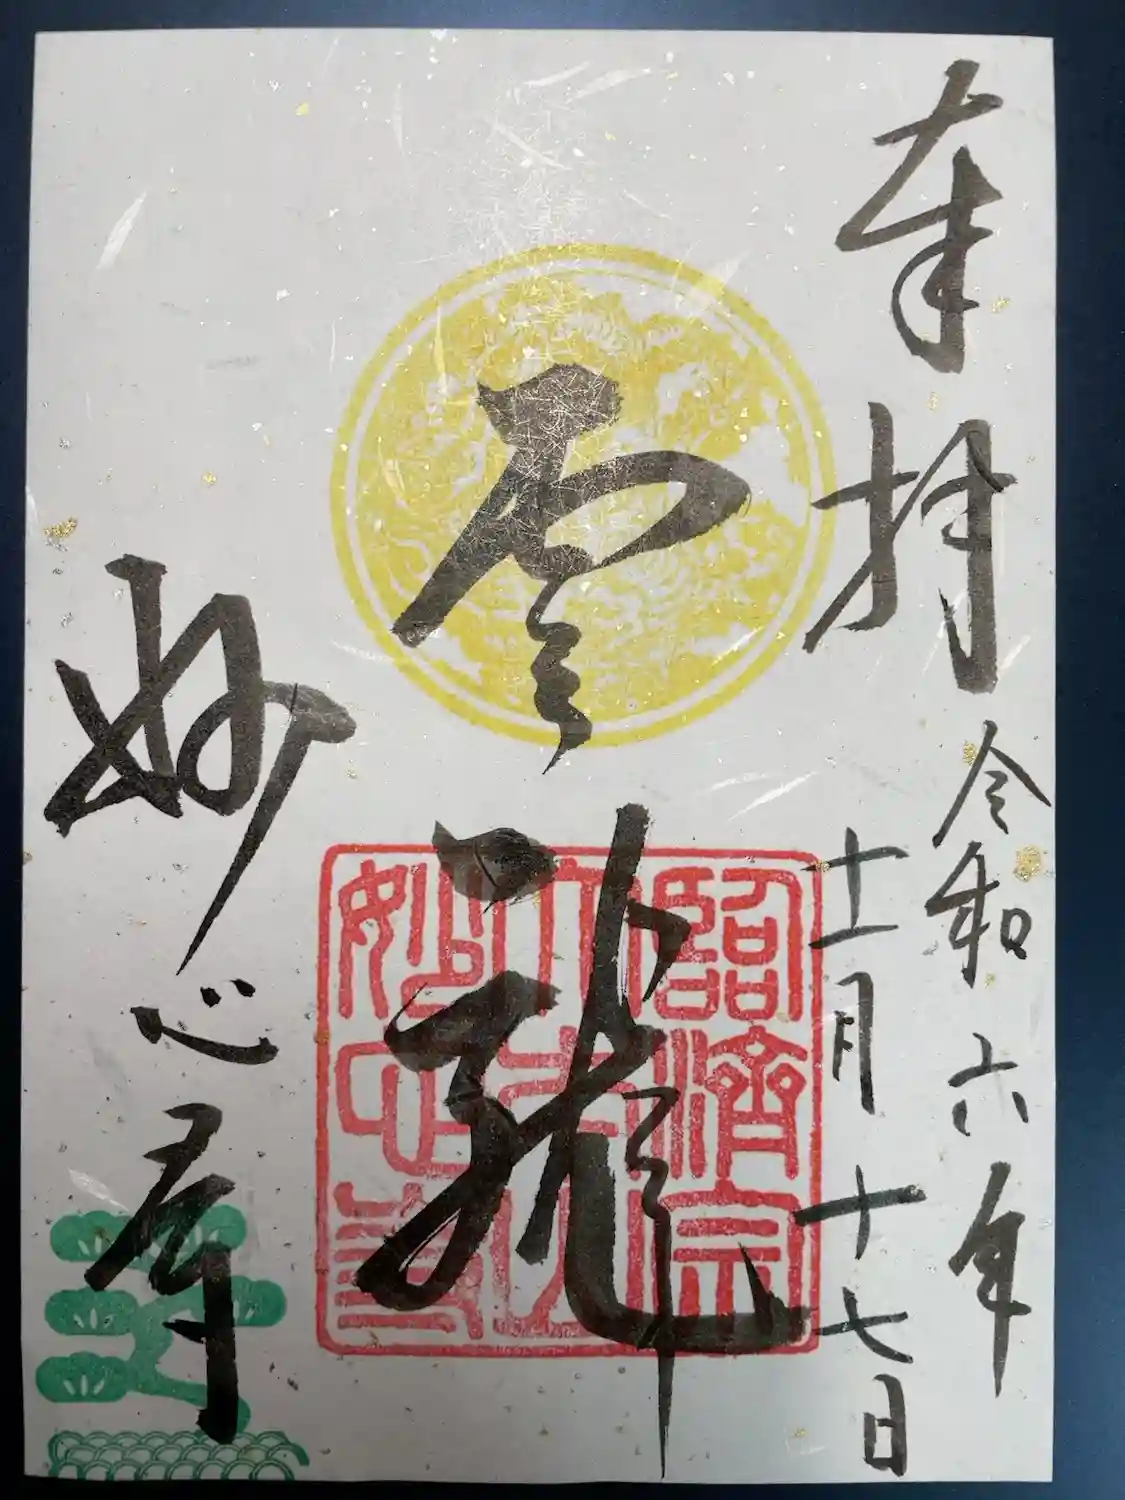 奉拝
令和六年
十一月十七日
雲龍
臨済宗
大本山
妙心寺